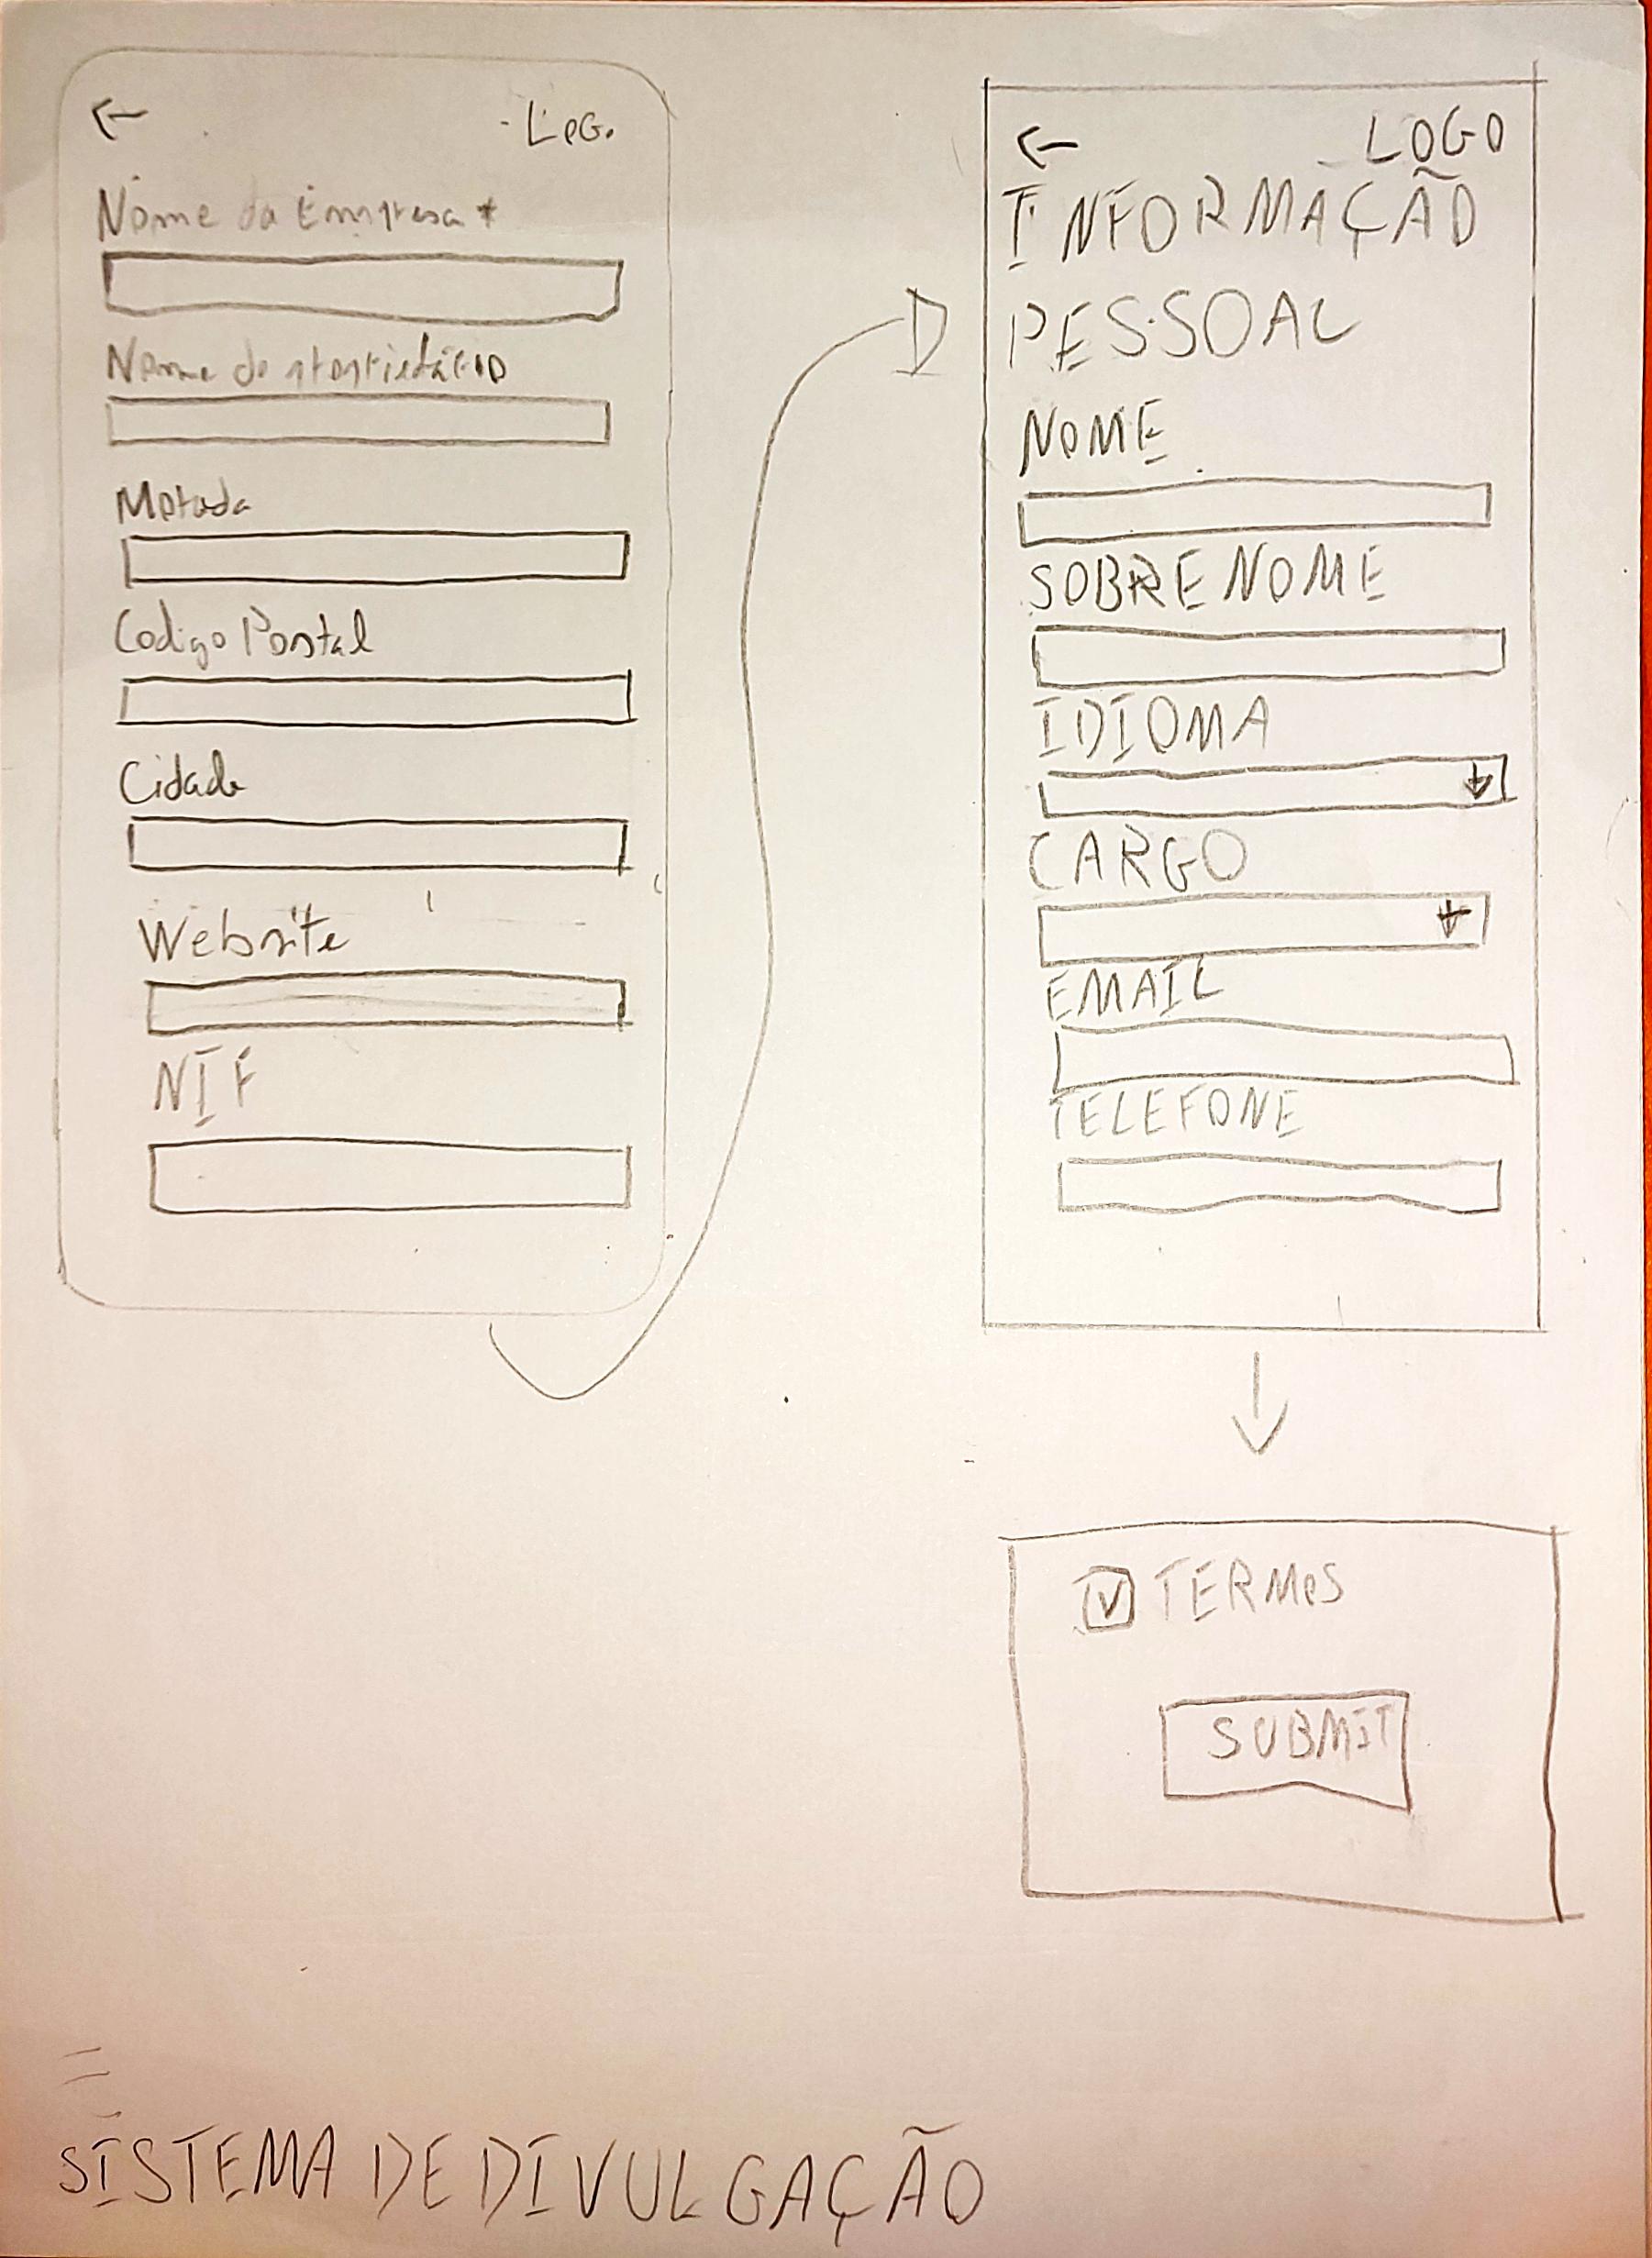 ← Logo
Nome da Empresa *
Nome do proprietário
Morada
Codigo Postal
Cidade
Website
NIF
← LOGO
INFORMAÇÃO
PESSOAL
NOME
SOBRENOME
IDIOMA
CARGO
EMAIL
TELEFONE
TERMOS
SUBMIT
SISTEMA DE DIVULGAÇÃO